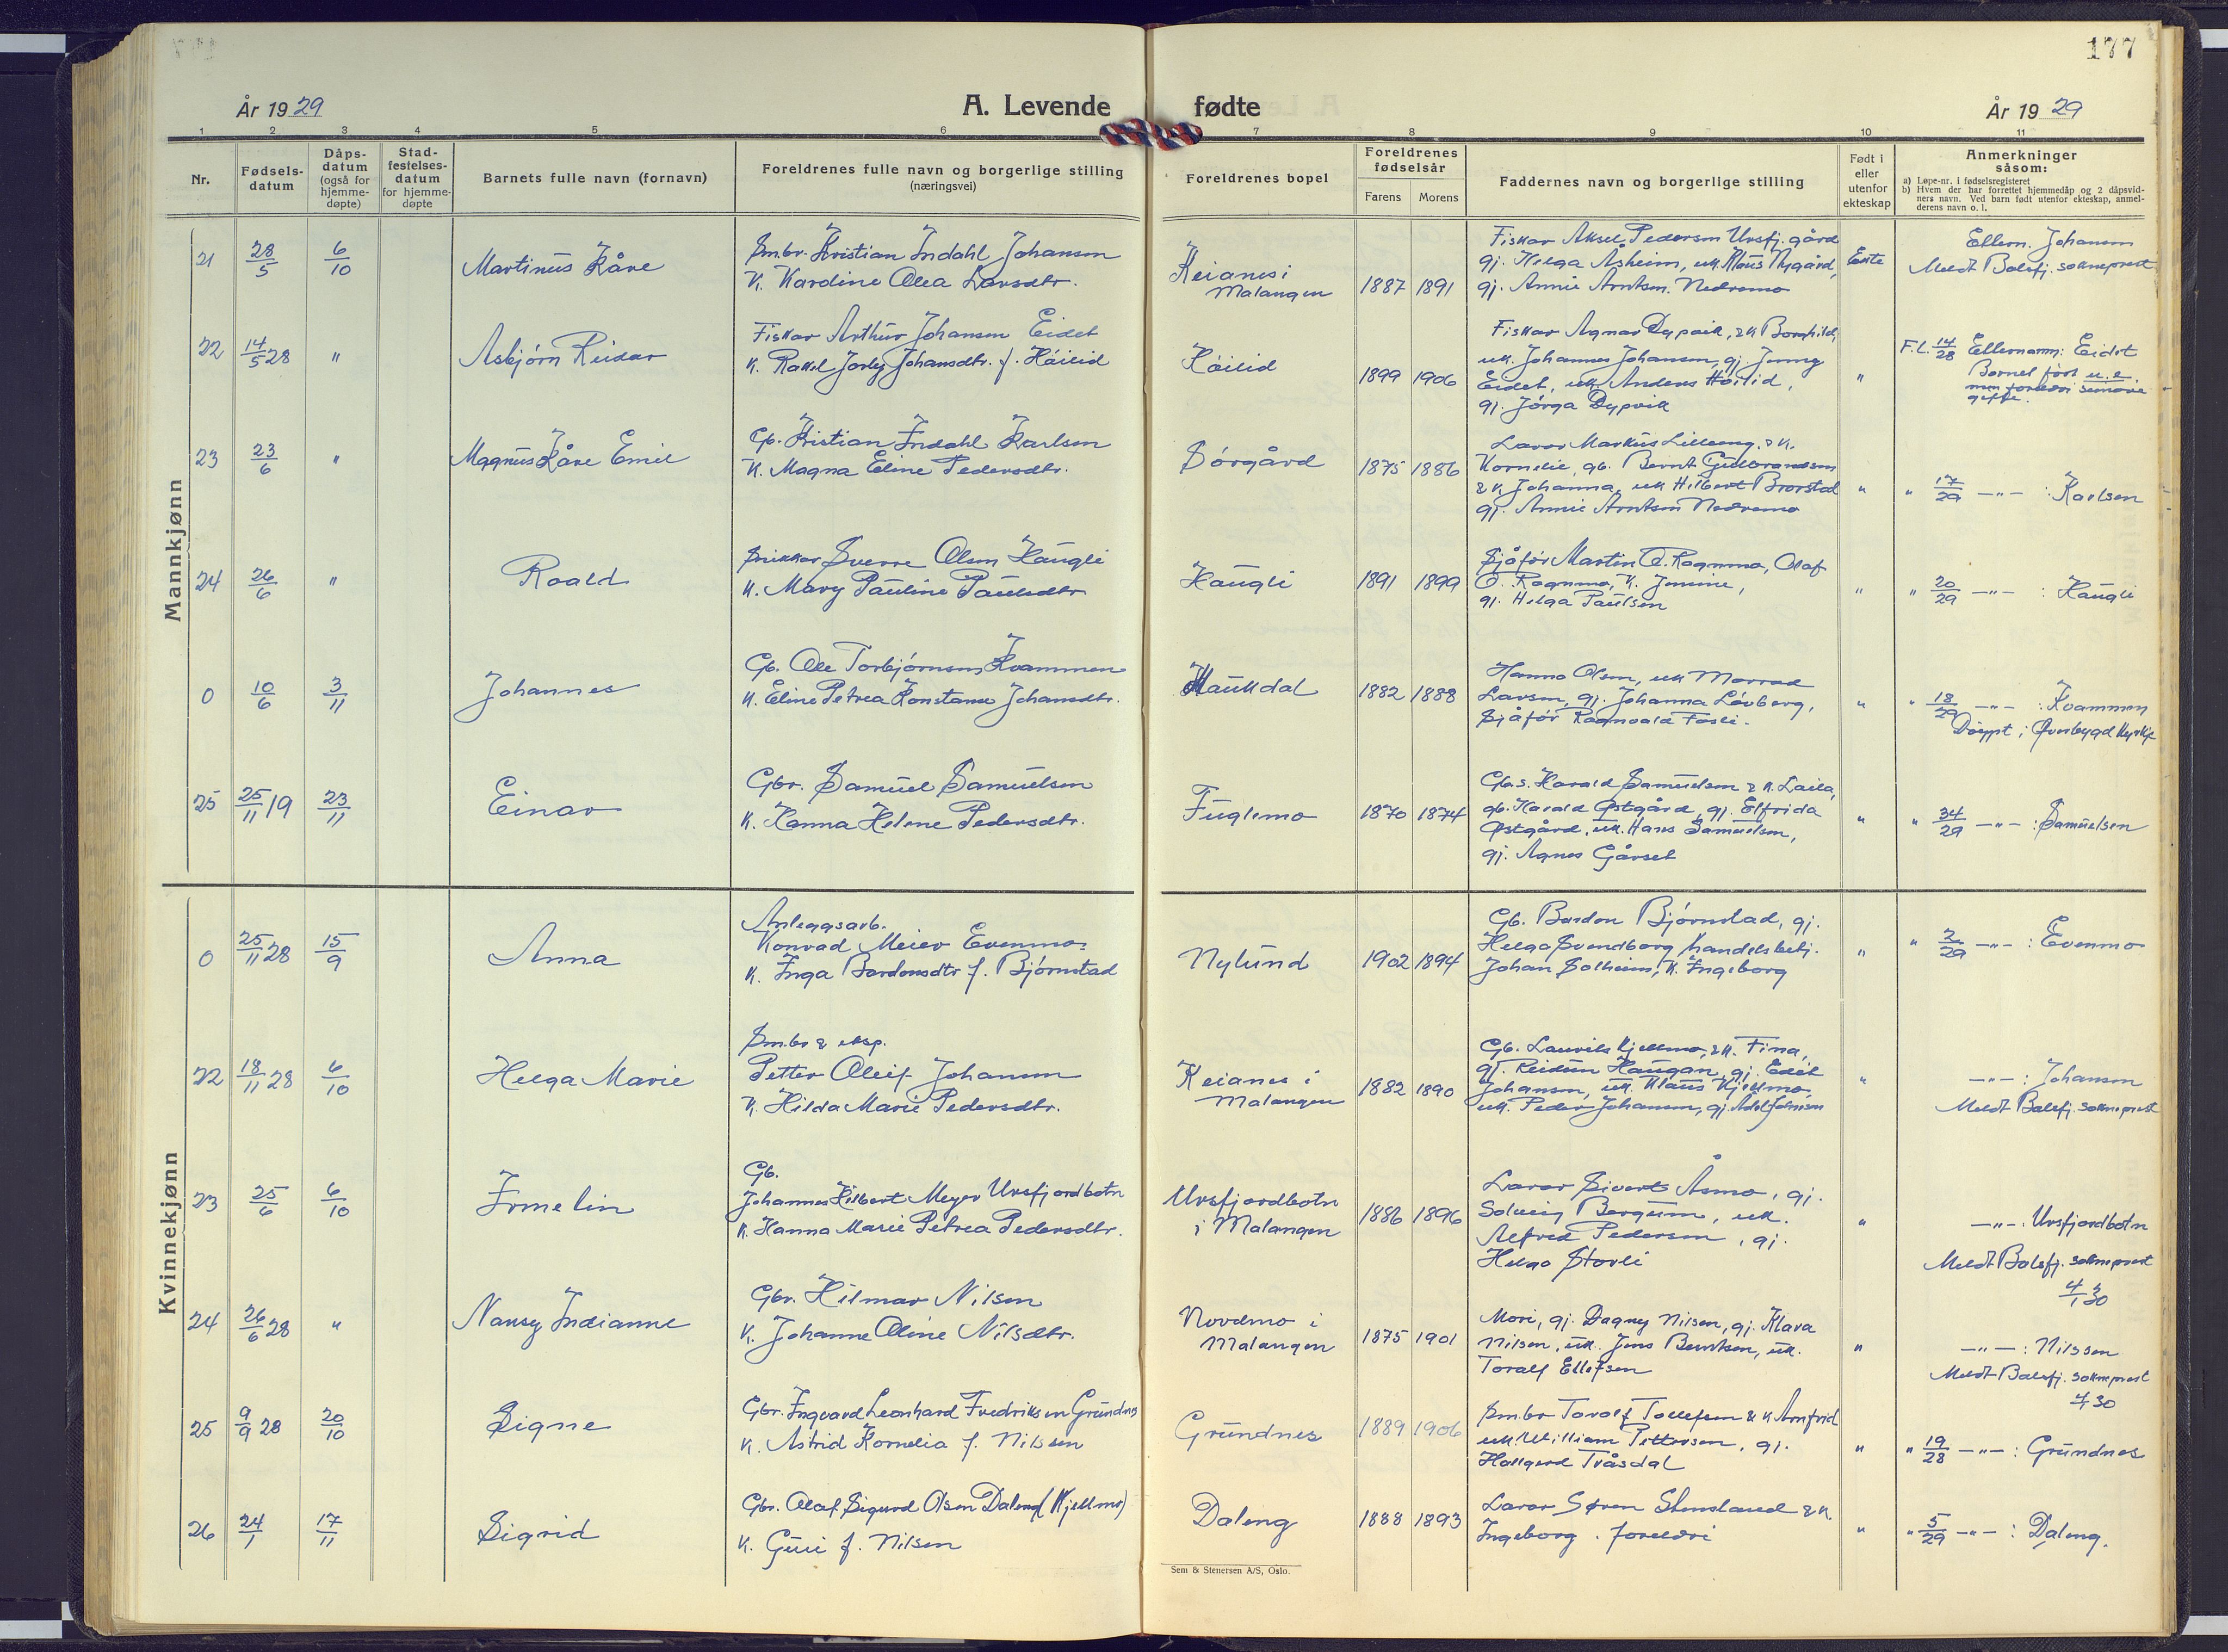 177
År 1929
A. Levende fødte
År 1929
1 2 3 4 5 6 7 8 9 10 11
Nr.
Fødsels-
datum
Dåps-
datum
(også for
hjemme-
døpte)
Stad-
festelses-
datum
for hjemme-
døpte
Barnets fulle navn (fornavn)
Foreldrenes fulle navn og borgerlige stilling
(næringsvei)
Foreldrenes bopel
Foreldrenes
fødselsår
Farens Morens
Faddernes navn og borgerlige stilling
Født i
eller
utenfor
ekteskap
Anmerkninger
såsom:
a) Løpe-nr. i fødselsregisteret
b) Hvem der har forrettet hjemmedåp og 2 dåpsvid-
ners navn. Ved barn født utenfor ekteskap, anmel-
derens navn o. l.
Mannkjønn
21 28/5 6/10 Martinus Kåre
Smbr. Kristian Indahl Johansen
K. Kardine Olea Larsdtr.
Keianes i
Malangen
1887 1891
Fisker Aksel Pedersen Ursfj.gård
gj. Helga Åsheim, uk. Klaus Nygård,
gj. Annie Arntsen Nedremo
Ekte
Ellern. Johansen
Meldt Balsfj. sokneprest
22 14/5 28 " Asbjørn Reidar
Fisker Arthur Johansen Eidet
K. Rakel Jorley Johansdtr. f. Høilid
Høilid
1899 1906
Fisker Agnar Dypvik, & K. Bornhild,
uk. Johannes Johansen, gj. Jenny
Eidet, uk. Anders Høilid,
gj. Jørga Dypvik
"
F.l. 14/28 Ellernamn: Eidet
Barnet født u.e.
men foreldri seinare
gifte.
23 23/6 " Magnus Kåre Emil
Gb. Kristian Indahl Karlsen
K. Magna Eline Pedersdtr.
Sørgård
1875 1886
Lærar Markus Lilleeng & K.
Kornelie, gb. Bernt Gulbrandsen
& K. Johanna, uk. Hilbert Brorstad
gj. Annie Arntsen Nedremo
"
" 17/29 —"— : Karlsen
24 26/6 " Roald
Snikkar Sverre Olsen Haugli
K. Mary Pauline Paulsdtr
Haugli
1891 1899
Sjåfør Martin O. Rognmo, Olaf
O. Rognmo, K. Jensine,
gj. Helga Paulsen
"
" 20/29 —"— : Haugli
0 10/6 3/11 Johannes
Gb. Ole Torbjørnsen Kvammen
K. Eline Petrea Konstanse Johansdtr.
Maukdal
1882 1888
Hanna Olsen, uk
Larsen, gj. Johanna Løvberg,
Sjåfør Ragnvald Fosli.
"
" 18/29 —"— : Kvammen
Døypt i Øverbygd kyrkje
25 25/11 19 23/11 Einar
Gbr. Samuel Samuelsen
K. Hanna Helene Pedersdtr.
Fuglemo
1870 1874
Gbs. Harald Samuelsen & K. Laila,
gb. Harald Østgård, gj. Elfrida
Østgård, uk. Hans Samuelsen,
gj. Agnes Gårset
"
" 34/29 —"— : Samuelsen
Kvinnekjønn
0 25/11 28 15/9 Anna
Anleggsarb.
Konrad Meier Evenmo
K. Inga Bardonsdtr f. Bjørnstad
Nylund
1902 1894
Gb. Bardon Bjørnstad, gj.
Helga Svendborg, handelsbetj.
Johan Solheim, K. Ingeborg
"
" 2/29 —"— : Evenmo
22 18/11 28 6/10 Helga Marie
Smbr & eksp.
Petter Oleif Johansen
K. Hilda Marie Pedersdtr.
Keianes i
Malangen
1882 1890
Gb. Laurits Kjellmo, & K. Fina,
gj. Reidun Haugan, gj. Edit
Johansen, uk. Klaus Kjellmo,
uk. Peder Johansen, gj. Adel Johnsen
"
—"— : Johansen
Meldt Balsfj. sokneprest
23 25/6 6/10 Irmelin
Gb.
Johannes Hilbert Meyer Ursfjordbotn
K. Hanna Marie Petrea Pedersdtr.
Ursfjordbotn
i Malangen
1886 1896
Lærar Sivert Åsmo, gj.
Solveig Bergum, uk.
Alfred Pedersen, gj.
Helga Storli
"
—"— : Ursfjordbotn
Meldt Balsfj. sokneprest
24 26/6 28 " Nansy Indianne
Gbr. Hilmar Nilsen
K. Johanne Oline Nilsdtr.
Nordmo i
Malangen
1875 1901
Mori, gj. Dagny Nilsen, gj. Klara
Nilsen, uk. Jens Berntsen, uk.
Toralf Ellefsen
"
—"— : Nilssen
Meldt Balsfj. sokneprest
25 9/9 28 20/10 Signe
Gbr. Ingvard Leonhard Fredriksen Grundnes
K. Astrid Kornelia f. Nilsen
Grundnes
1889 1906
Smbr Toralf Tollefsen & K Arnfrid
uk. William Pettersen, gj.
Hallgerd Tråsdal
"
" 19/28 —"— : Grundnes
26 24/1 17/11 Sigrid
Gbr. Olaf Sigurd Olsen Daleng (Kjellmo)
K. Guri f. Nilsen
Daleng
1888 1893
Lærar Søren Stensland & K.
Ingeborg. foreldri
"
" 5/29 —"— : Daleng.
Sem & Stenersen A/S, Oslo.